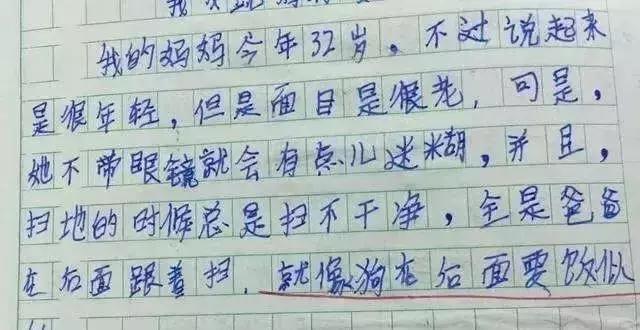 我的妈妈今年32岁，不过说起来
是很年轻，但是面目是很老，可是，
她不带眼镜就会有点儿迷糊，并且，
扫地的时候总是扫不干净，全是爸爸
在后面跟着扫，就像狗在后面要饭似